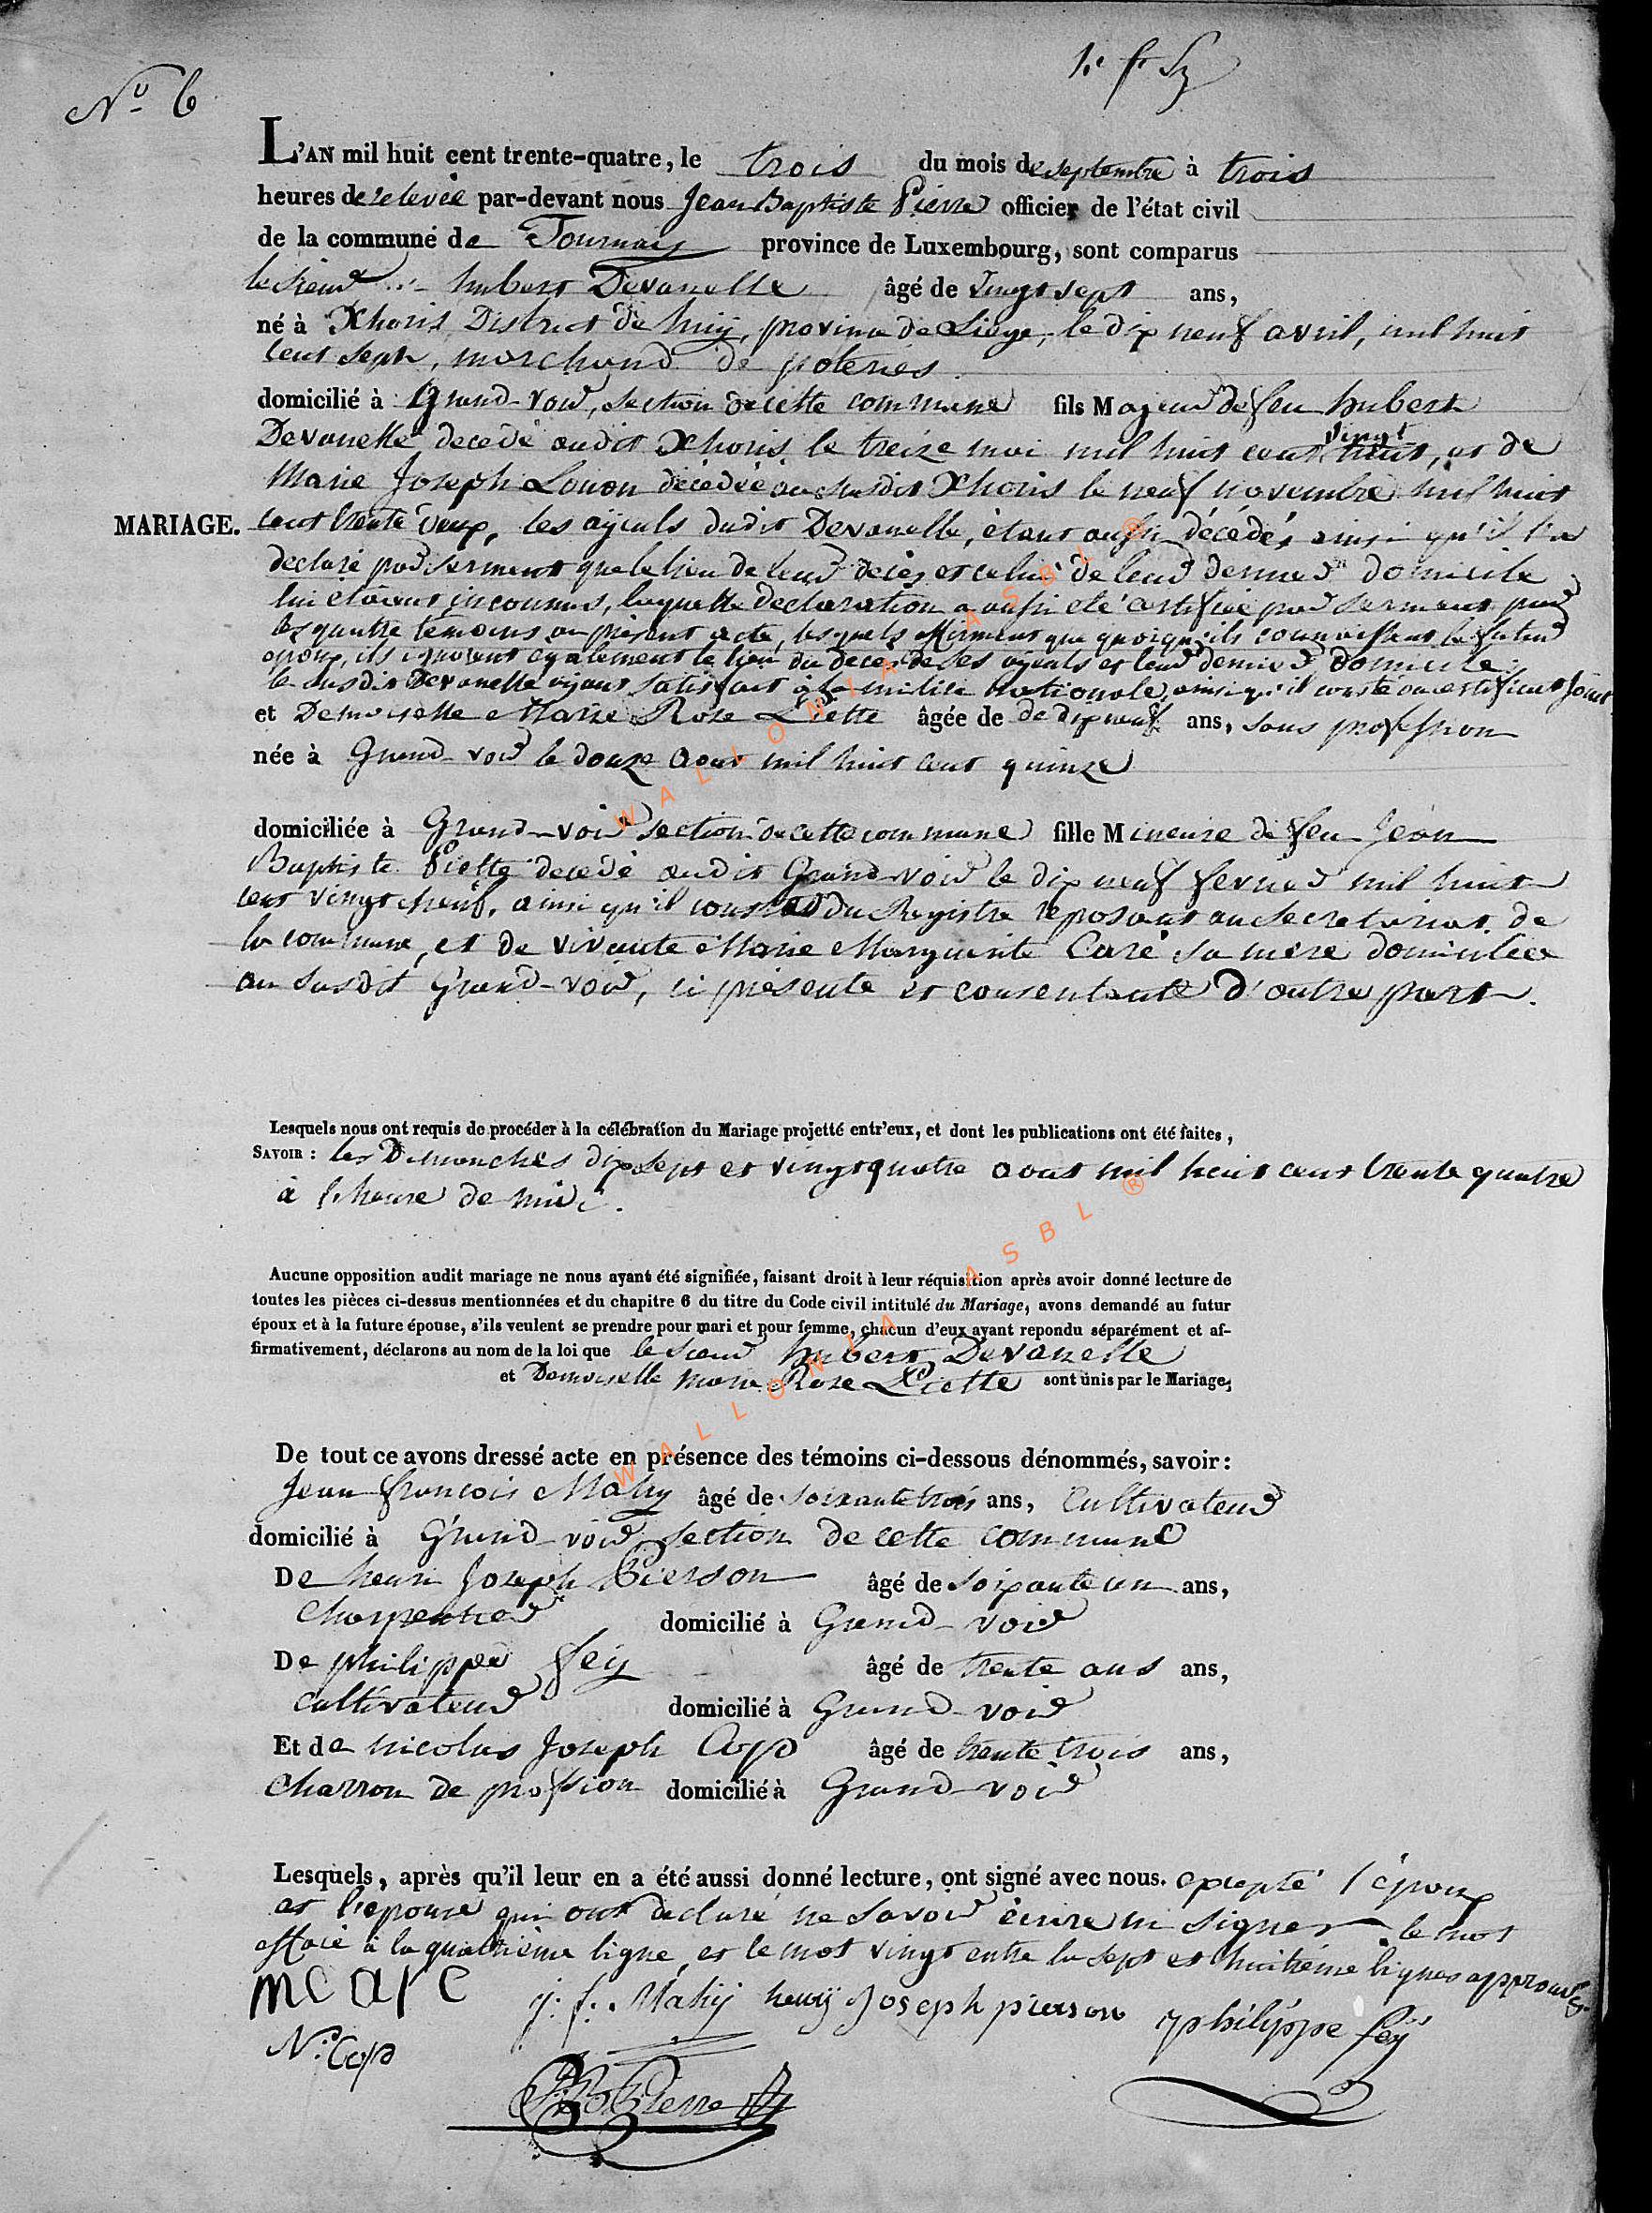 Nº 6
L'AN mil huit cent trente-quatre, le trois du mois de septembre à trois
heures de relevée par-devant nous Jean Baptiste Pierre officier de l'état civil
de la commune de Tournay province de Luxembourg, sont comparus
le Sieur hubert Devanelle âgé de vingt sept ans,
né à Xhoris District de huy, province de Liége, le dix neuf avril, mil huit
cent sept, marchand de poteries
domicilié à Grand-voir, section de cette commune fils Majeur de feu hubert
Devanelle décédé audit Xhoris le treize mai mil huit cent vingt huit, et de
Marie Joseph Louon décédée au susdit Xhoris le neuf novembre mil huit
MARIAGE.
cent trente deux, les ayeuls dudit Devanelle, étant aussi décédés ainsi qu'il l'a
declaré par serment que le lieu de leur décès et celui de leur dernier domicile
lui étaient inconnus, laquelle declaration a aussi été certifiée par serment par
les quatre témoins au présent acte, lesquels affirment que quoiqu'ils connaissent le futur
époux, ils ignorent également le lieu du décès de ses ayeuls et leur dernier domicile
le susdit Devanelle ayant satisfait à la milice nationale, ainsi qu'il conste au certificat joint
et Demoiselle Marie Rose Piette âgée de de dix neuf ans, sans profession
née à Grand-voir le douze aout mil huit cent quinze
domiciliée à Grand-voir section de cette commune fille Mineure de feu Jean
Baptiste Piette décédé audit Grand-voir le dix neuf fevrier mil huit
cent vingt neuf, ainsi qu'il conste du Registre reposant au secretariat de
la commune, et de vivante Marie Marguerite Caré sa mère domiciliée
au susdit Grand-voir, ci présente et consentante d'autre part.
Lesquels nous ont requis de procéder à la célébration du Mariage projetté entr'eux, et dont les publications ont été faites,
SAVOIR : les Dimanches dix sept et vingt quatre aout mil huit cent trente quatre
à l'heure de midi.
Aucune opposition audit mariage ne nous ayant été signifiée, faisant droit à leur réquisition après avoir donné lecture de
toutes les pièces ci-dessus mentionnées et du chapitre 6 du titre du Code civil intitulé du Mariage, avons demandé au futur
époux et à la future épouse, s'ils veulent se prendre pour mari et pour femme, chacun d'eux ayant repondu séparément et af-
firmativement, déclarons au nom de la loi que le Sieur hubert Devanelle
et Demoiselle Marie Rose Piette sont unis par le Mariage;
De tout ce avons dressé acte en présence des témoins ci-dessous dénommés, savoir:
Jean françois Mahy âgé de soixante trois ans, Cultivateur
domicilié à Grand-voir section de cette commune
De henri Joseph Pierson âgé de soixante un ans,
Charpentier domicilié à Grand-voir
De philippe fey âgé de trente ans ans,
cultivateur domicilié à Grand-voir
Et de nicolas Joseph Cop âgé de trente trois ans,
Charron de profssion domicilié à Grand-voir
Lesquels, après qu'il leur en a été aussi donné lecture, ont signé avec nous. excepté l'époux
et l'epouse qui ont déclaré ne savoir écrire ni signer. le mot
effacé à la quatrième ligne, et le mot vingt entre la sept et huitième lignes approuvés.
j. f. Mahy henrÿ Joseph pierson philippe fey
N. Cop
JBte Pierre
WALLONIA ASBL ®
WALLONIA ASBL ®